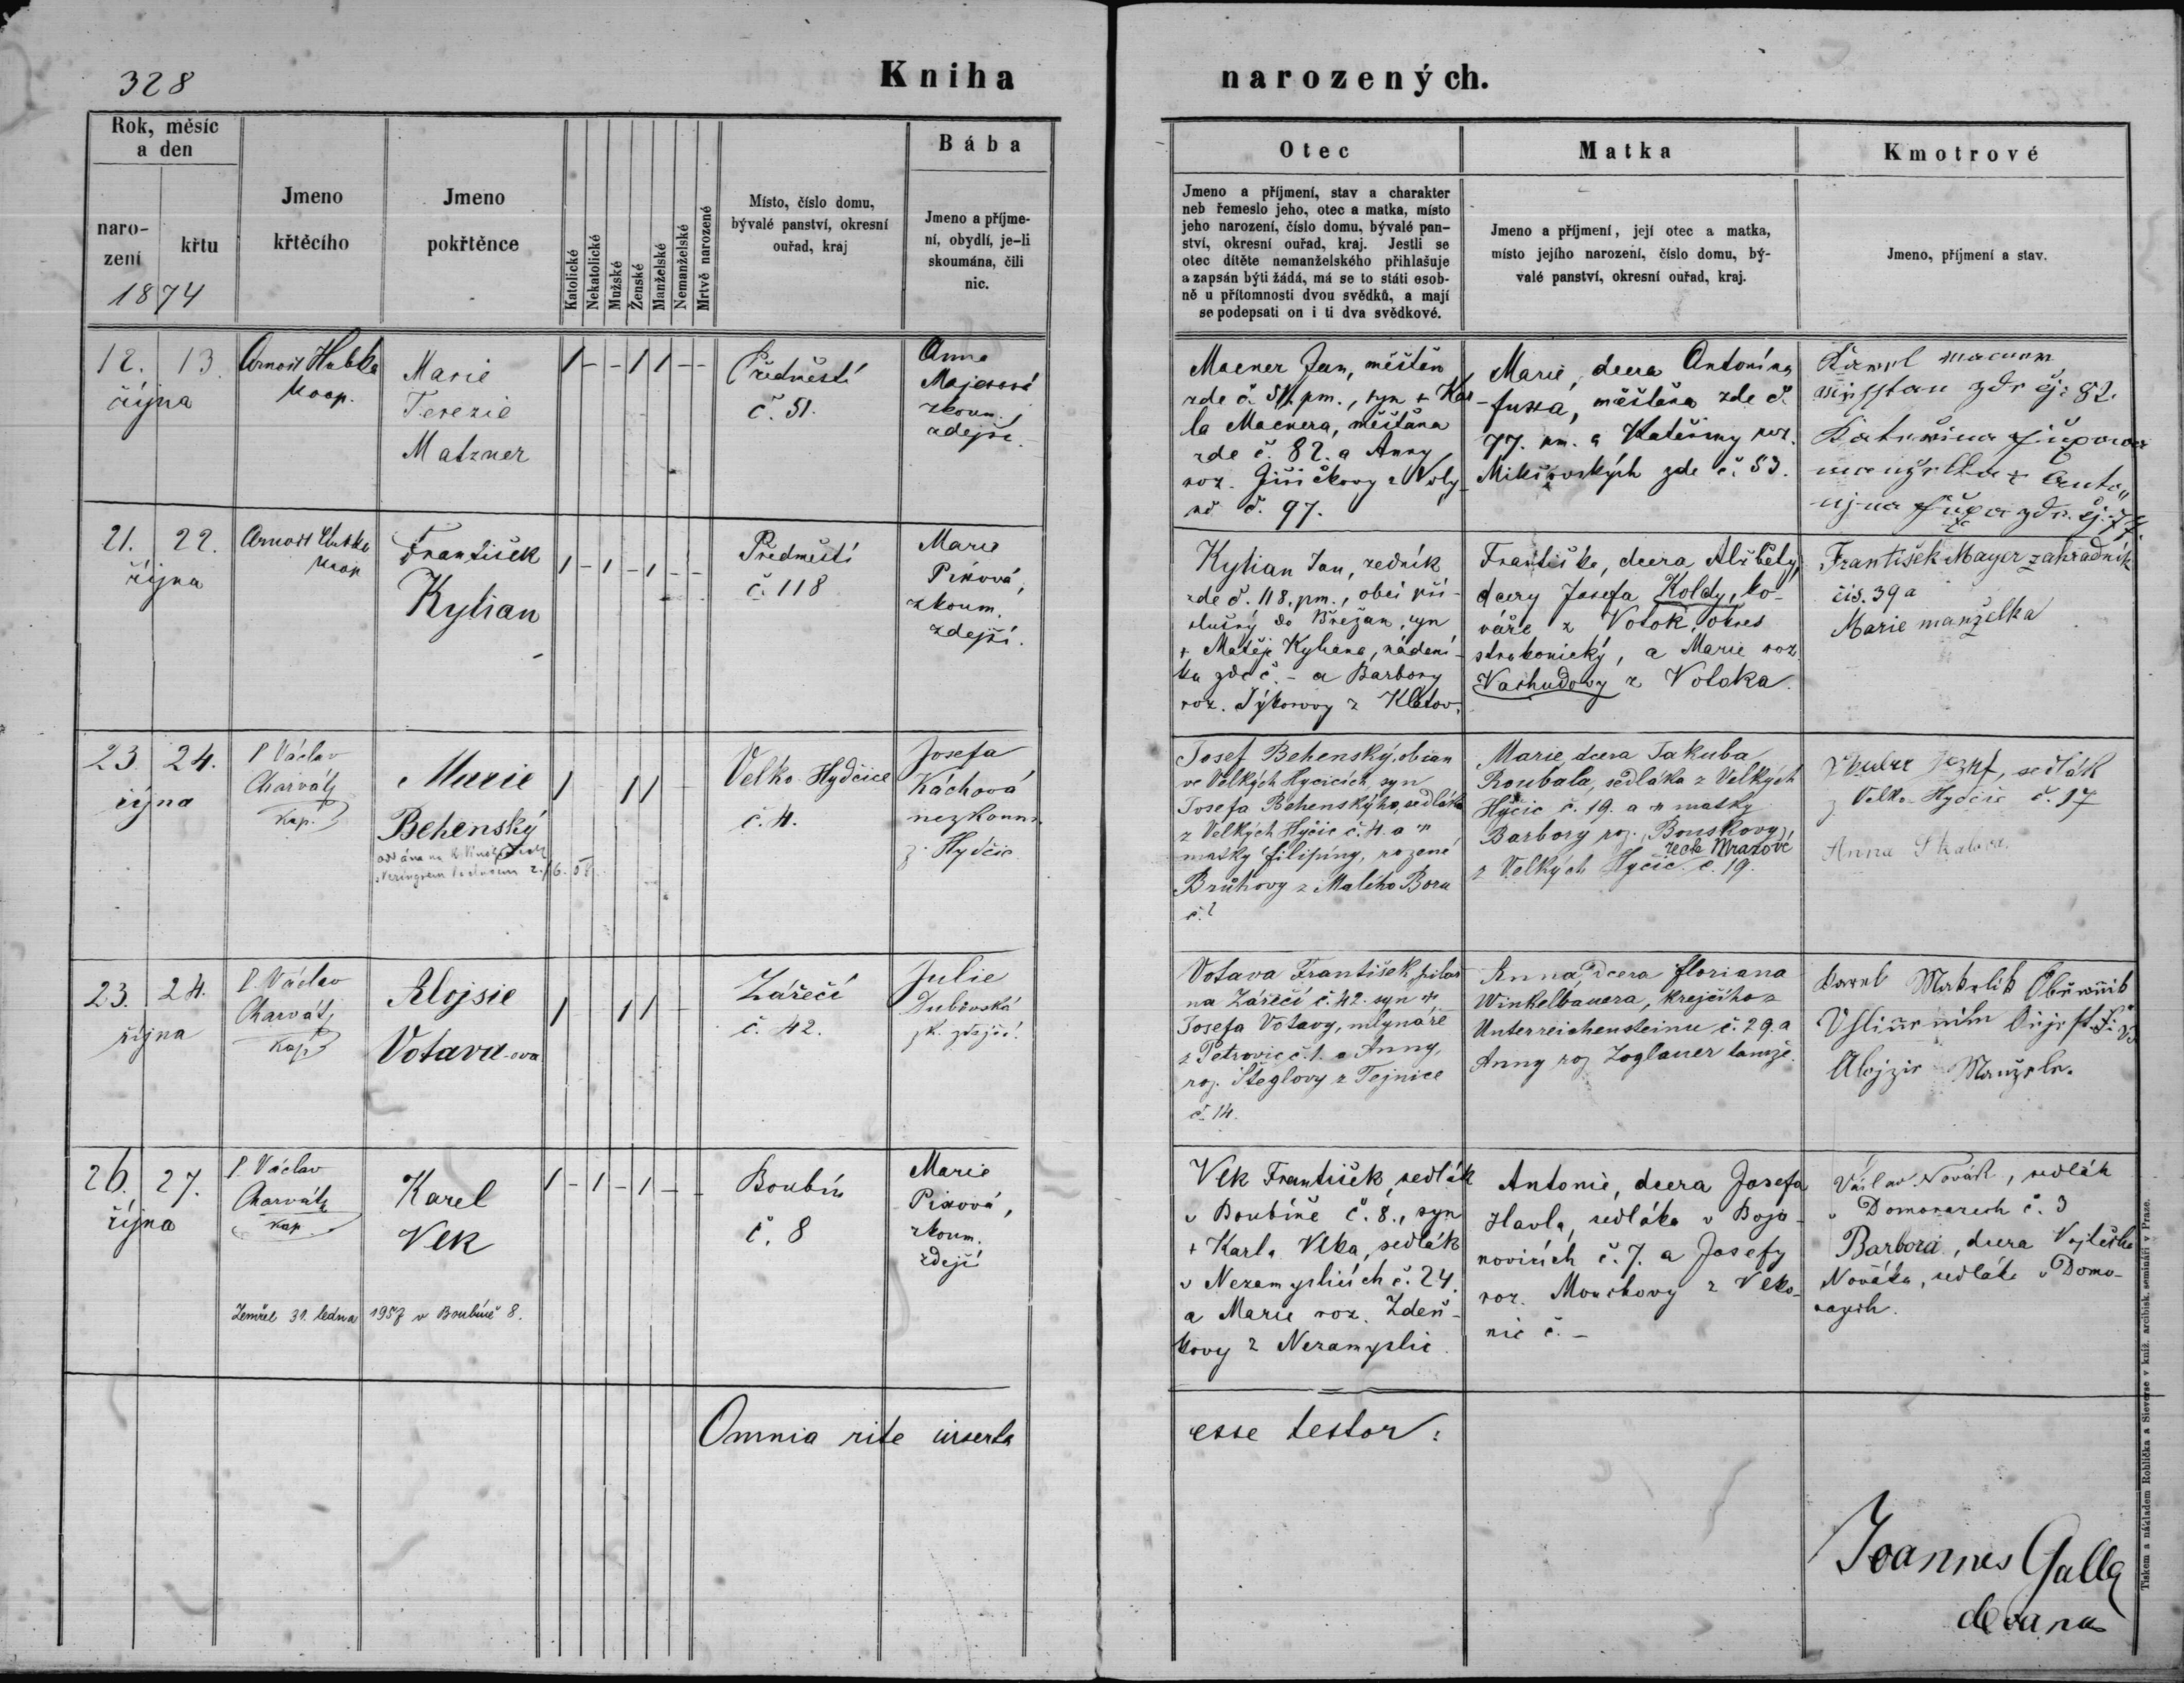 328
Kniha
narozených.
Rok, měsíc
a den
naro-
zení
křtu
1874
Jmeno
křtěcího
Jmeno
pokřtěnce
Katolické
Nekatolické
Mužské
Ženské
Manželské
Nemanželské
Mrtvě narozené
Místo, číslo domu,
bývalé panství, okresní
ouřad, kraj
Bába
Jmeno a příjme-
ní, obydlí, je-li
skoumána, čili
nic.
Otec
Jmeno a příjmení, stav a charakter
neb řemeslo jeho, otec a matka, místo
jeho narození, číslo domu, bývalé pan-
ství, okresní ouřad, kraj. Jestli se
otec dítěte nemanželského přihlašuje
a zapsán býti žádá, má se to státi osob-
ně u přítomnosti dvou svědků, a mají
se podepsati on i ti dva svědkové.
Matka
Jmeno a příjmení, její otec a matka,
místo jejího narození, číslo domu, bý-
valé panství, okresní ouřad, kraj.
Kmotrové
Jmeno, příjmení a stav.
12. 13.
října
Arnošt Hubka
koop.
Marie
Terezie
Matzner
1 - - 1 1 - -
Předměstí
č. 51.
Anna
Majerová
zkoum.,
zdejší.
Macner Jan, měštěn
zde č. 51. pm., syn + Kar-
la Macnera, měšťana
zde č. 82. a Anny
roz. Jiřičkovy z Voly-
ně č. 97.
Marie, dcera Antonína
měšťana zde č.
77. pm. a Kateřiny roz.
zde č. 53.
Karel
zde čj: 82.
Kateřina
manželka
21. 22.
října
Arnošt Hubka
koop
František
Kylian
1 - 1 - 1 - -
Předměstí
č. 118
Marie
Pixová,
zkoum.
zdejší.
Kylian Jan, zedník
zde č. 118. pm., obcí pří-
slušný do Břežan, syn
+ Matěje Kyliana, nádení-
ka zde č. - a Barbory
roz. Týkorovy z Klatov.
Františka, dcera Alžběty,
dcery Josefa Koldy, ko-
váře z Volok, okres
strakonický, a Marie roz.
Vachudovy z Voloka.
František Mayer zahradník
čis. 39 a
Marie manželka
23. 24.
října
P. Václav
Charvát,
kap.
Marie
Behenský
1 1 1
Velko Hydčice
č. 4.
Josefa
Káchová
nezkoum.
z Hydčic
Josef Behenský, občan
ve Velkých Hyčicích, syn
Josefa Behenskýho, sedláka
z Velkých Hyčic č. 4. a
matky Filipíny, rozené
Brůhovy z Malého Boru
č. ?
Marie, dcera Jakuba
Roubala, sedláka z Velkých
Hyčic č. 19. a matky
Barbory roz. Bouškovy
recte Mrázové
z Velkých Hyčic č. 19.
Josef, sedlák
z Velko-Hydčic č. 17
Anna Skalová
23. 24.
října
P. Václav
Charvát,
kap.
Alojsie
Votava-ova
1 1 1
Zářečí
č. 42.
Julie
Dubovská
zk. zdejší.
Votava František, pilař
na Zářečí č. 42. syn
Josefa Votavy, mlynáře
z Petrovic č. 1. a Anny,
roz. Šteglovy z Tejnice
č. 14.
Anna, dcera Floriana
Winkelbauera, krejčího z
Unterreichensteinu č. 29. a
Anny roz Zoglauer tamže.
Karel
Alojzie
26. 27.
října
P. Václav
Charvát,
kap.
Karel
Vlk
1 - 1 - 1 - -
Boubín
č. 8
Marie
Pixová,
zkoum.
zdejší
Zemřel 31. ledna 1957 v Boubíně 8.
Vlk František, sedlák
v Boubíně č. 8., syn
+ Karla Vlka, sedlák
v Nezamyslicích č. 24.
a Marie roz. Zdeň-
kovy z Nezamyslic.
Antonie, dcera Josefa
Havla, sedláka v Boja-
novicích č. 7. a Josefy
roz. Mouchovy z Veko-
nic č. -
Václav Novák, sedlák
v Domorazech č. 3
Barbora, dcera Vojtěcha
Nováka, sedláka v Domo-
razech.
Omnia rite inserta
esse testor:
Joannes Galla
decanus
Tiskem a nákladem Rohlíčka a Sieverse v kníž. arcibisk. semináři v Praze.